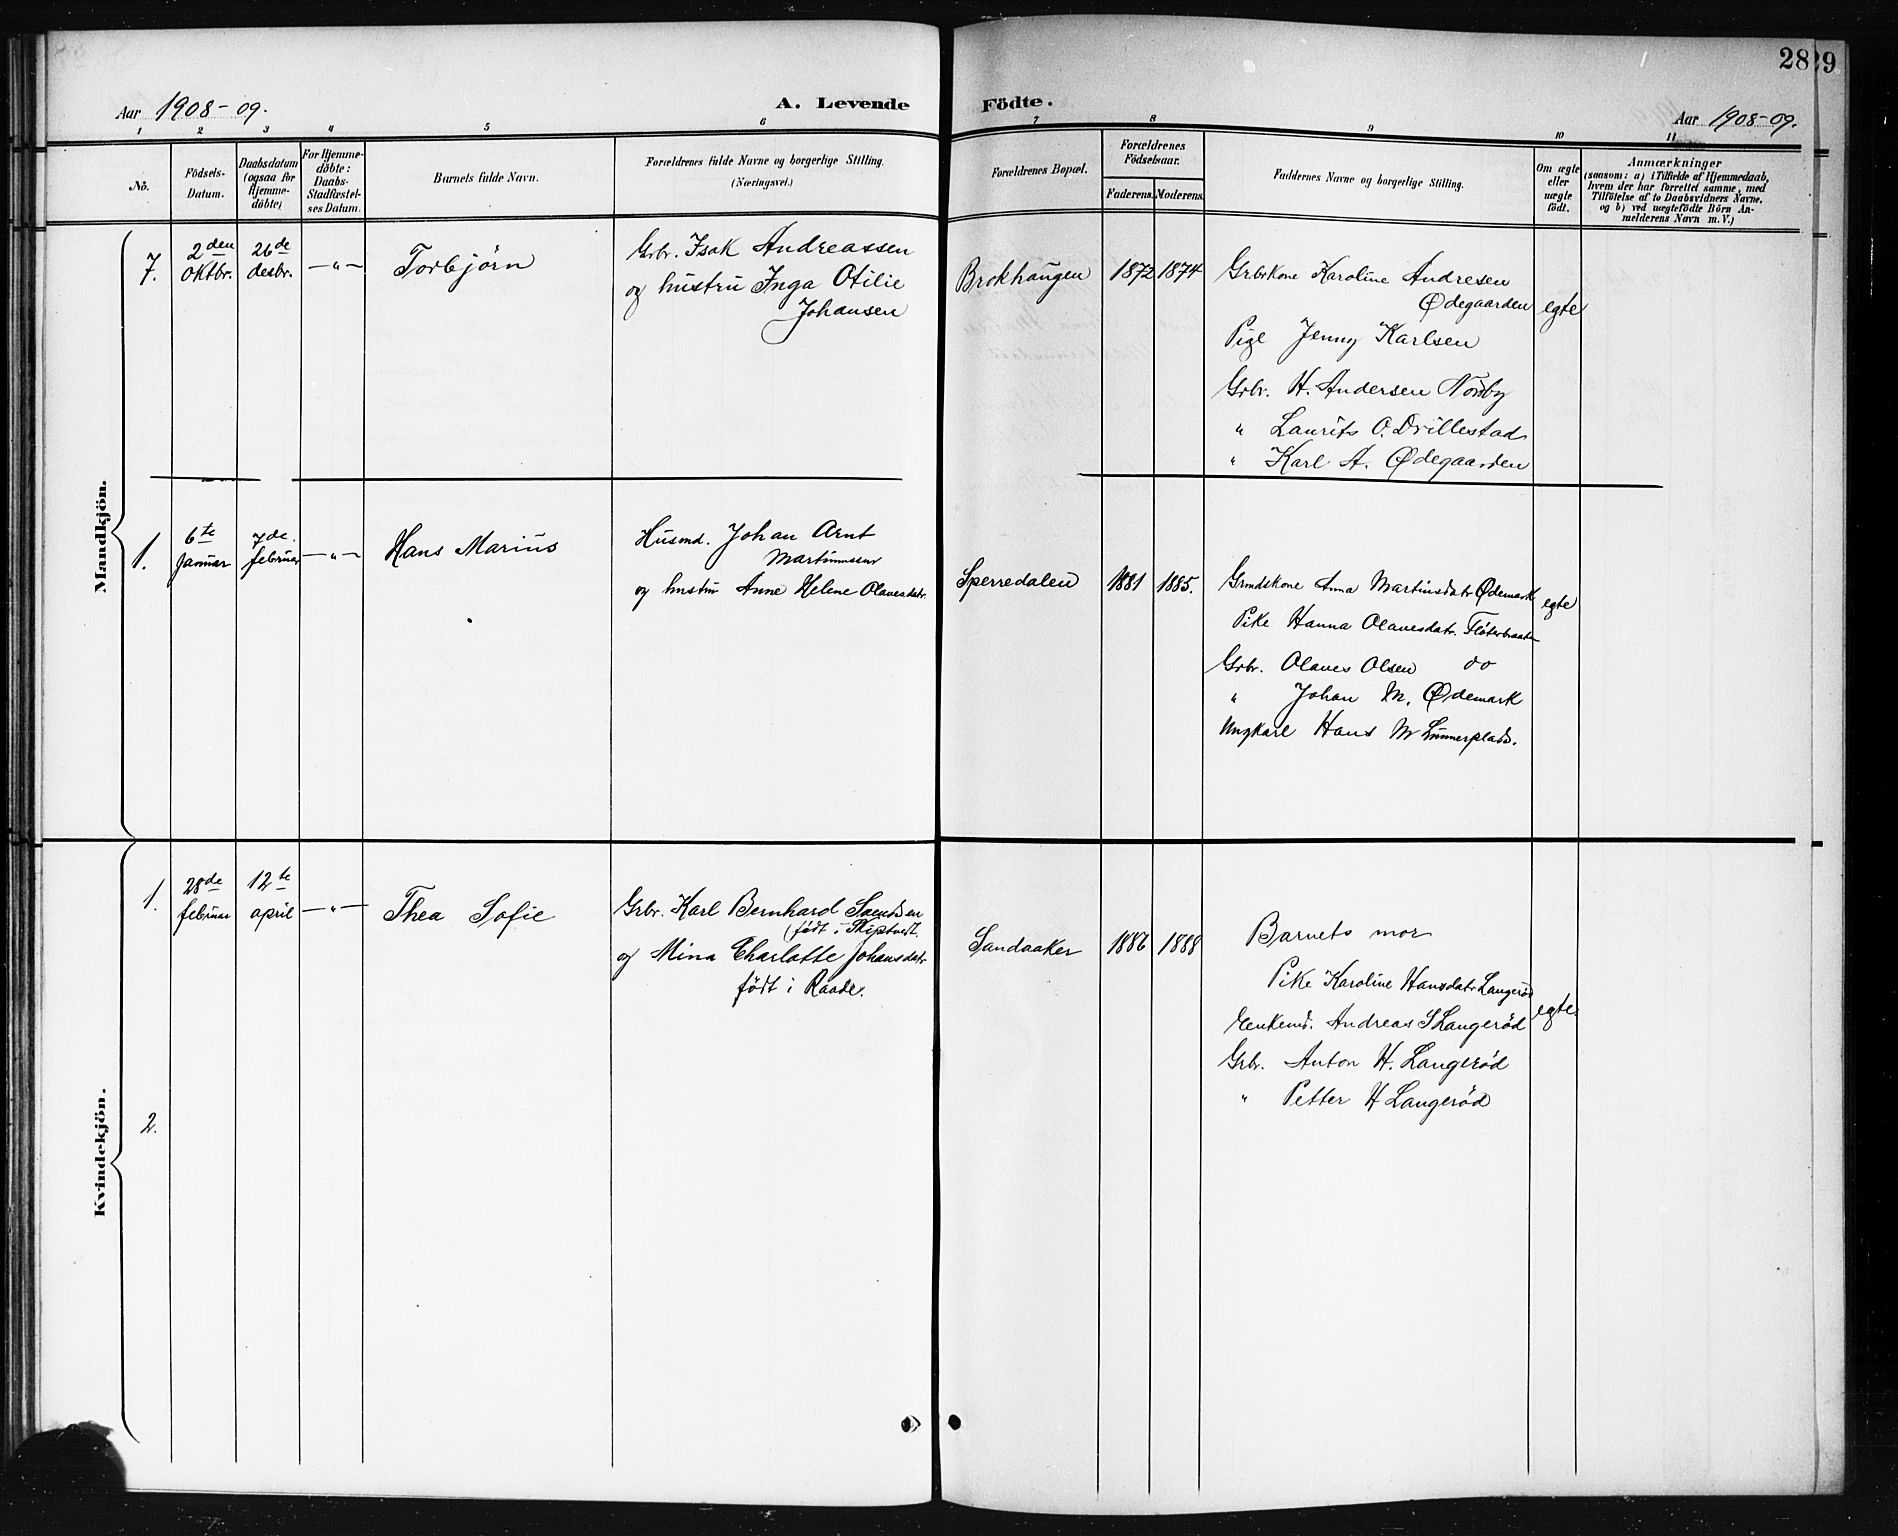 28
29
Aar 1908-09.
A. Levende
Födte.
Aar 1908-09.
1 2 3 4 5 6 7 8 9 10 11
Nô.
Födsels-
Datum.
Daabsdatum
(ogsaa for
Hjemme-
döbte)
For Hjemme-
döbte:
Daabs-
Stadfæstel-
ses Datum.
Barnets fulde Navn.
Forældrenes fulde Navne og borgerlige Stilling.
(Næringsvei.)
Forældrenes Bopæl.
Forældrenes
Födselsaar.
Faderens.
Moderens.
Faddernes Navne og borgerlige Stilling.
Om ægte
eller
uægte
födt.
Anmærkninger
(saasom: a) i Tilfælde af Hjemmedaab,
hvem der har forrettet samme, med
Tilföielse af to Daabsvidners Navne,
og b) ved uægtefödte Börn An-
melderens Navn m. V.)
Mandkjön.
7.
2den
oktbr.
26de
desbr.
—"—
Torbjörn
Grbr. Isak Andreassen
og hustru Inga Otilie
Johansen
Brokhaugen
1872
1874
Grbrkone Karoline Andresen
Ødegaarden
Pige Jenny Karlsen
Grbr. H. Andersen Nordby
" Laurits O. Drillestad
" Karl A. Ødegaarden
egte
1.
6te
januar
7de.
februar
—"—
Hans Marius
Husmd. Johan Arnt
Martinussen
og hustru Anne Helene Olavesdatr.
Sperredalen
1881
1885.
Grmdskone Anna Martinsdatr Ødemark
Pike Hanna Olavesdatr. Fløterbraaten
Grbr. Olaves Olsen do
" Johan M. Ødemark
Ungkarl Hans M Lunnerplads.
egte
Kvindekjön.
1.
28de
februar
12te
april
—"—
Thea Sofie
Grbr. Karl Bernhard Svendsen
(født i Skiptvedt.
og Mina Charlotte Johansdatr
født i Raade.
Sandaaker
1886
1888
Barnets mor
Pike Karoline Hansdatr Langerød
Enkemd. Andreas S Langerød
Grbr. Anton H. Langerød
" Petter H Langerød
egte.
2.